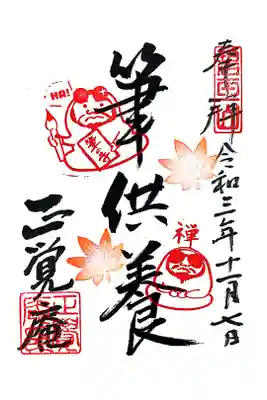 奉拝 令和三年十一月七日
筆供養
正覚庵
HA!
禅